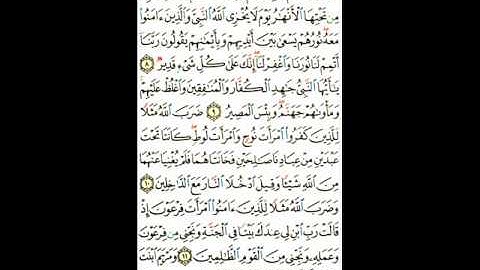 مِن تَحْتِهَا الْأَنْهَٰرُ يَوْمَ لَا يُخْزِى اللَّهُ النَّبِىَّ وَالَّذِينَ ءَامَنُوا
مَعَهُ نُورُهُمْ يَسْعَىٰ بَيْنَ أَيْدِيهِمْ وَبِأَيْمَٰنِهِمْ يَقُولُونَ رَبَّنَا
أَتْمِمْ لَنَا نُورَنَا وَاغْفِرْ لَنَا إِنَّكَ عَلَىٰ كُلِّ شَىْءٍ قَدِيرٌ ٨
يَٰأَيُّهَا النَّبِىُّ جَٰهِدِ الْكُفَّارَ وَالْمُنَٰفِقِينَ وَاغْلُظْ عَلَيْهِمْ
وَمَأْوَىٰهُمْ جَهَنَّمُ وَبِئْسَ الْمَصِيرُ ٩ ضَرَبَ اللَّهُ مَثَلًا
لِلَّذِينَ كَفَرُوا امْرَأَتَ نُوحٍ وَامْرَأَتَ لُوطٍ كَانَتَا تَحْتَ
عَبْدَيْنِ مِنْ عِبَادِنَا صَٰلِحَيْنِ فَخَانَتَاهُمَا فَلَمْ يُغْنِيَا عَنْهُمَا
مِنَ اللَّهِ شَيْئًا وَقِيلَ ادْخُلَا النَّارَ مَعَ الدَّٰخِلِينَ ١٠
وَضَرَبَ اللَّهُ مَثَلًا لِلَّذِينَ ءَامَنُوا امْرَأَتَ فِرْعَوْنَ إِذْ
قَالَتْ رَبِّ ابْنِ لِى عِندَكَ بَيْتًا فِى الْجَنَّةِ وَنَجِّنِى مِن فِرْعَوْنَ
وَعَمَلِهِ وَنَجِّنِى مِنَ الْقَوْمِ الظَّٰلِمِينَ ١١ وَمَرْيَمَ ابْنَتَ